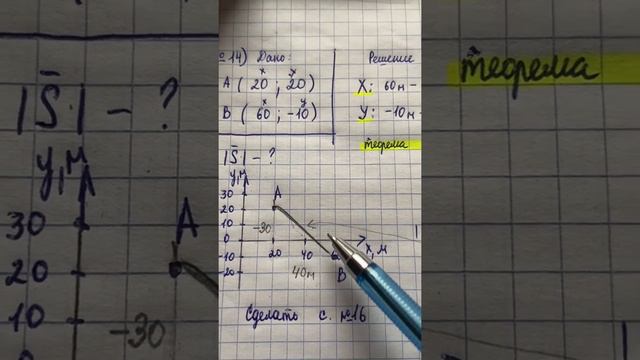 №14) Дано:
A ( 20 ; 20 )
B ( 60 ; -10 )
|S̄| - ?
Решение
X: 60м -
У: -10м -
теорема
у,м
A
30
20
10
0
-10
-20
-30
20
40
х,м
40м
B
Сделать с. №16
|S̄| - ?
у,м
A
30
20
10
-30
теорема